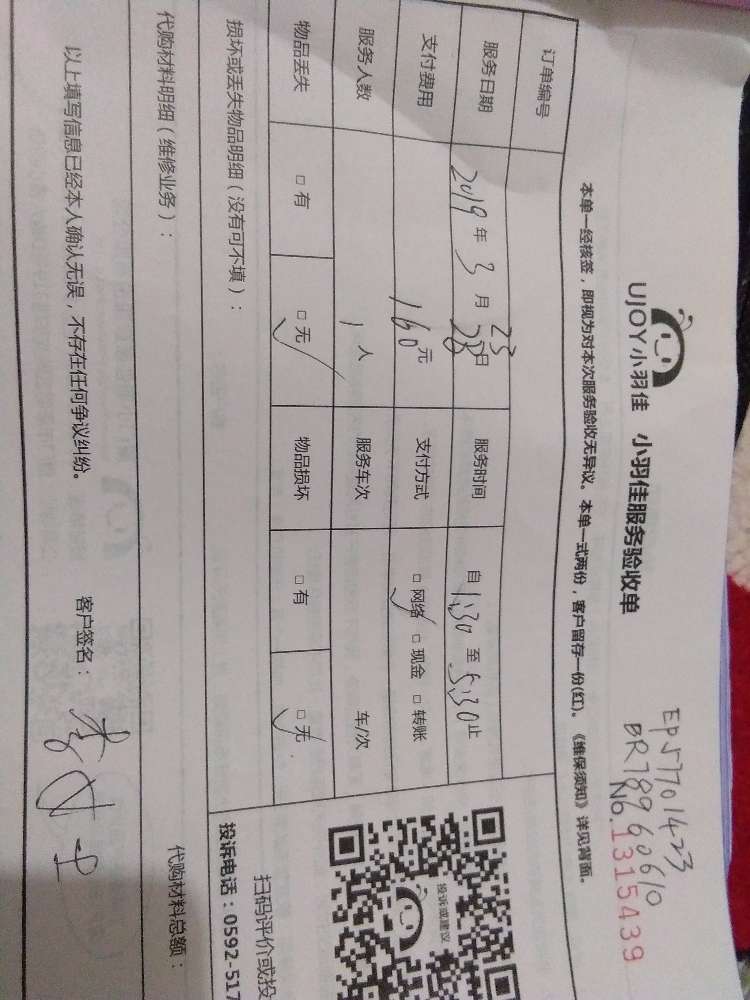 EP57701423
BR78960610
No.1315439
UJOY小羽佳 小羽佳服务验收单
本单一经核签，即视为对本次服务验收无异议。本单一式两份，客户留存一份(红)。《维保须知》详见背面。
订单编号
服务日期 2019 年 3 月 28 23 日 服务时间 自 1:30 至 5:30 止
支付费用 160 元 支付方式 □ 网络 □ 现金 □ 转账
服务人数 1 人 服务车次 车/次
物品丢失 □ 有 □ 无 物品损坏 □ 有 □ 无
损坏或丢失物品明细（没有可不填）：
代购材料明细（维修业务）： 代购材料总额：
以上填写信息已经本人确认无误，不存在任何争议纠纷。 客户签名：
投诉或建议
扫码评价或投
投诉电话：0592-517